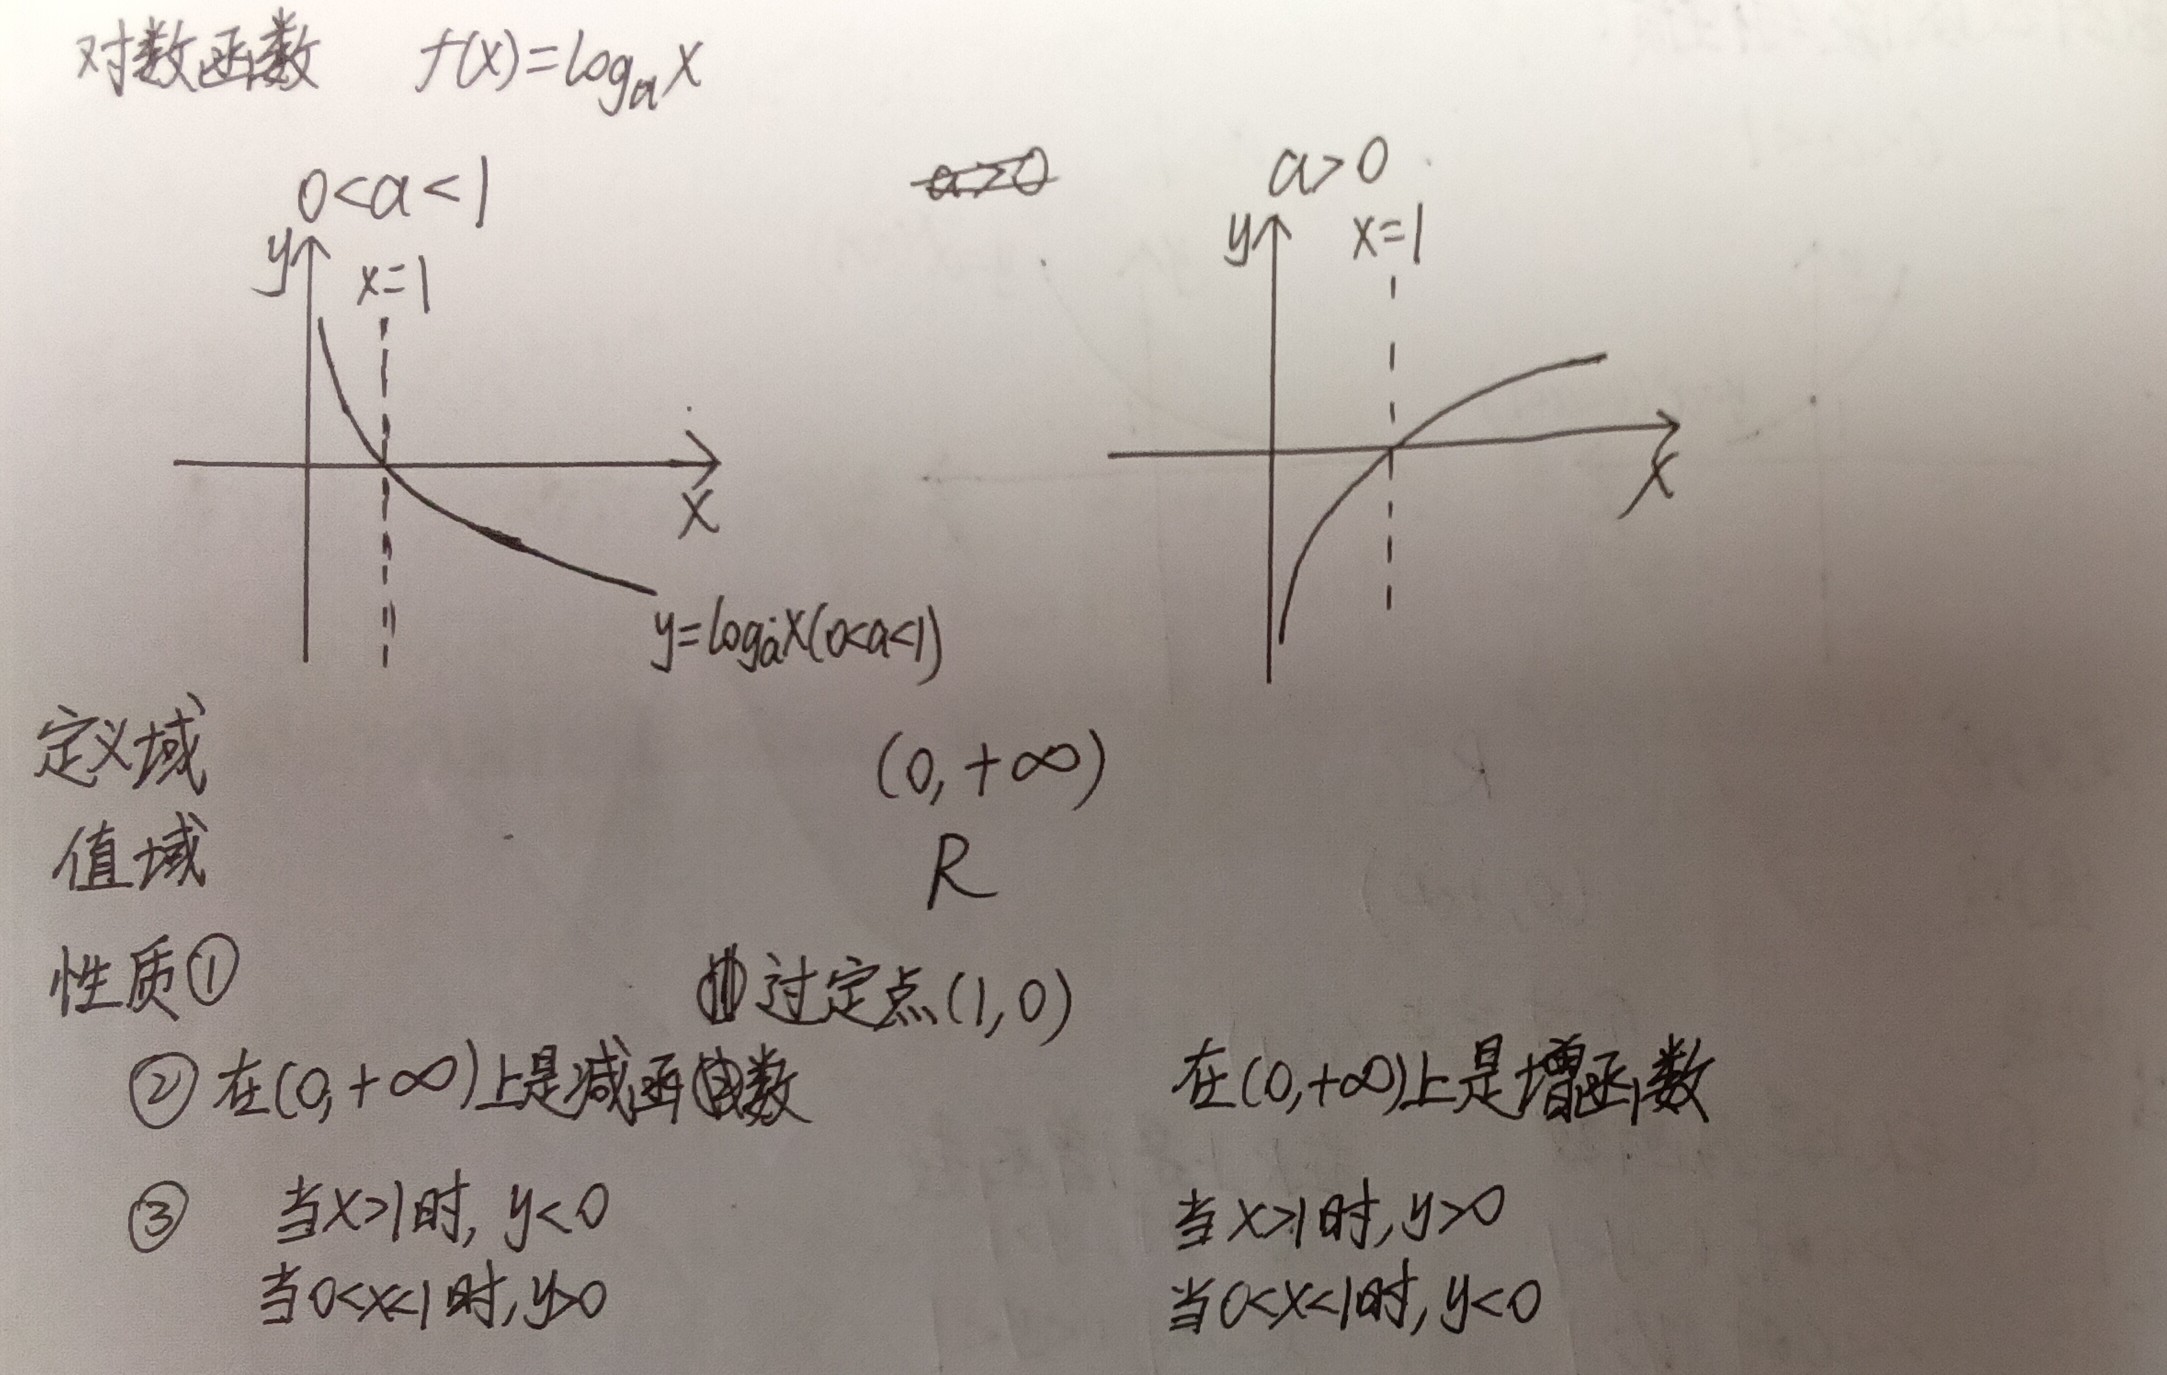 对数函数 f(x)=logₐx
0<a<1
a>0
y x=1
y x=1
x
x
y=logₐx(0<a<1)
定义域 (0,+∞)
值域 R
性质① 过定点(1,0)
② 在(0,+∞)上是减函数 在(0,+∞)上是增函数
③ 当x>1时, y<0 当x>1时,y>0
当0<x<1时,y>0 当0<x<1时,y<0